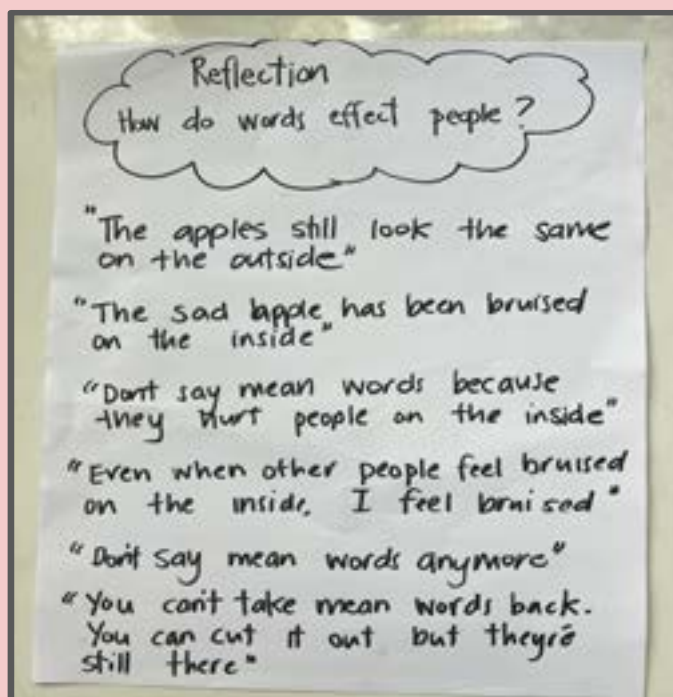 Reflection
How do words effect people?
"The apples still look the same
on the outside"
"The sad apple has been bruised
on the inside"
"Dont say mean words because
they hurt people on the inside"
"Even when other people feel bruised
on the inside, I feel bruised"
"Don't say mean words anymore"
"You can't take mean words back.
You can cut it out but they're
still there"